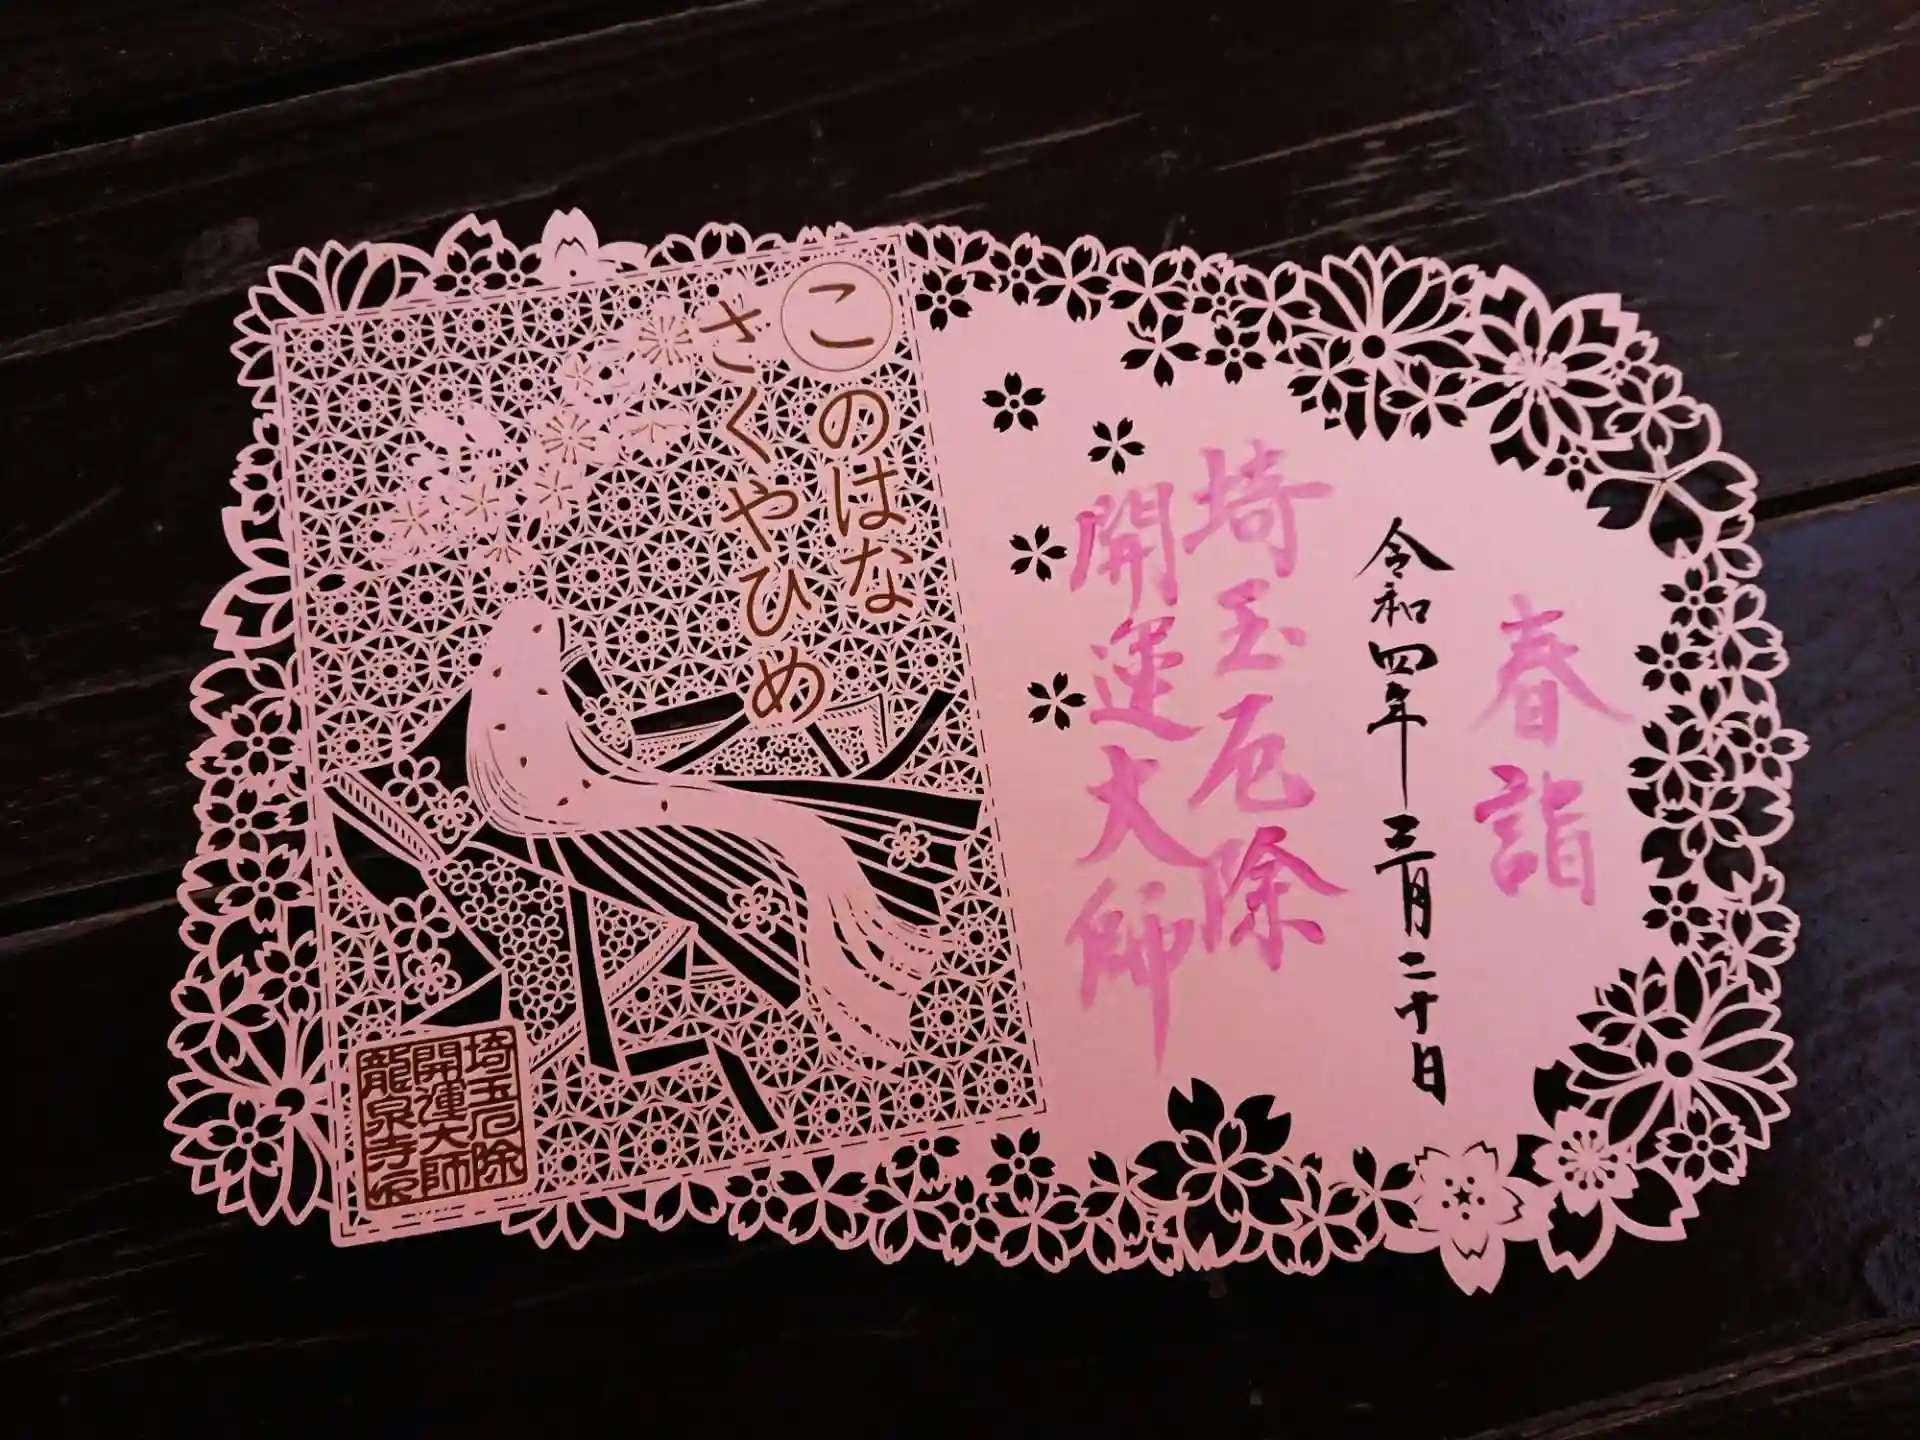 春詣
令和四年三月二十日
埼玉厄除
開運大師
このはな
さくやひめ
埼玉厄除
開運大師
龍泉寺印